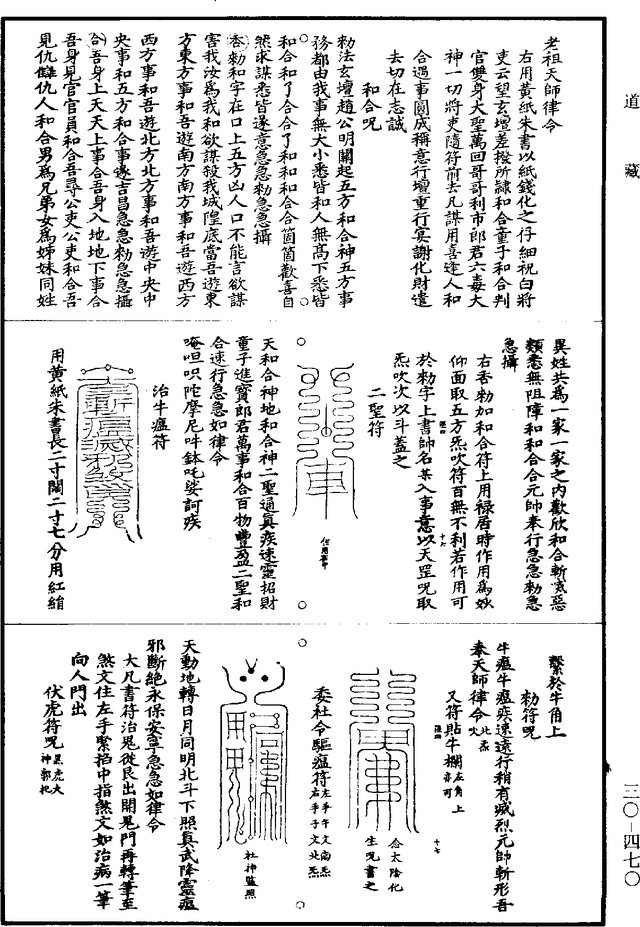 道藏
老祖天師律令
右用黃紙朱書以紙錢化之仔細祝白將
吏云望玄壇差撥所隸和合童子和合判
官雙身大聖萬回哥哥利市郎君六毒大
神一切將吏隨符前去凡謀用喜逢人和
合遇事圓成稱意行壇重行宴謝化財遣
去切在志誠
和合呪
勑法玄壇趙公明關起五方和合神五方事
務都由我事無大小悉皆和人無高下悉皆
和合和了合合了和和和合合箇箇歡喜自
然求謀悉皆遂意急急勑急急攝
勑和字在口上五方凶人口不能言欲謀
害我汝為我和欲謀殺我城隍底當吾遊東
方東方事和吾遊南方南方事和吾遊西方
西方方事和吾遊北方北方事和吾遊中央中
央事和五方和合事遂吉昌急急勑急急攝
合吾身上天天上事合吾身入地地下事合
吾身見官官員和合吾尋公吏公吏和合吾
見仇讎仇人和合男為兄弟女為姊妹同姓
異姓共為一家一家之內歡欣和合斬滅惡
類悉無阻障和和合合元帥奉行急急勑急
急攝
右香勑加和合符上用祿居時作用為妙
仰面取五方炁吹符百無不利若作用可
於勑字上書師名某入事意以天罡呪取
炁吹次以斗蓋之
二聖符
天和合神地和合神二聖通真疾速靈招財
童子進寶郎君萬事和合百物豐盈二聖和
合速行急急如律令
唵呾呮陀摩尼吽鉢吒娑訶疾
治牛瘟符
用黃紙朱書長二寸闊二寸七分用紅絹
繫於牛角上
勑符呪
牛瘟牛瘟疾速遠行稍有威烈元帥斬形吾
奉天師律令北炁火
又符貼牛欄左角上亦可
念太陰化生呪書之
委社令驅瘟符左手午文南炁右手子文北炁
社神監照
天動地轉日月同明北斗下照真武降靈瘟
邪斷絕永保安寧急急如律令
大凡書符治鬼從艮出開鬼門再轉筆至
煞文住左手緊掐中指煞文如治病一筆
向人門出
伏虎符呪黑虎大神郭杞
三〇-四七〇